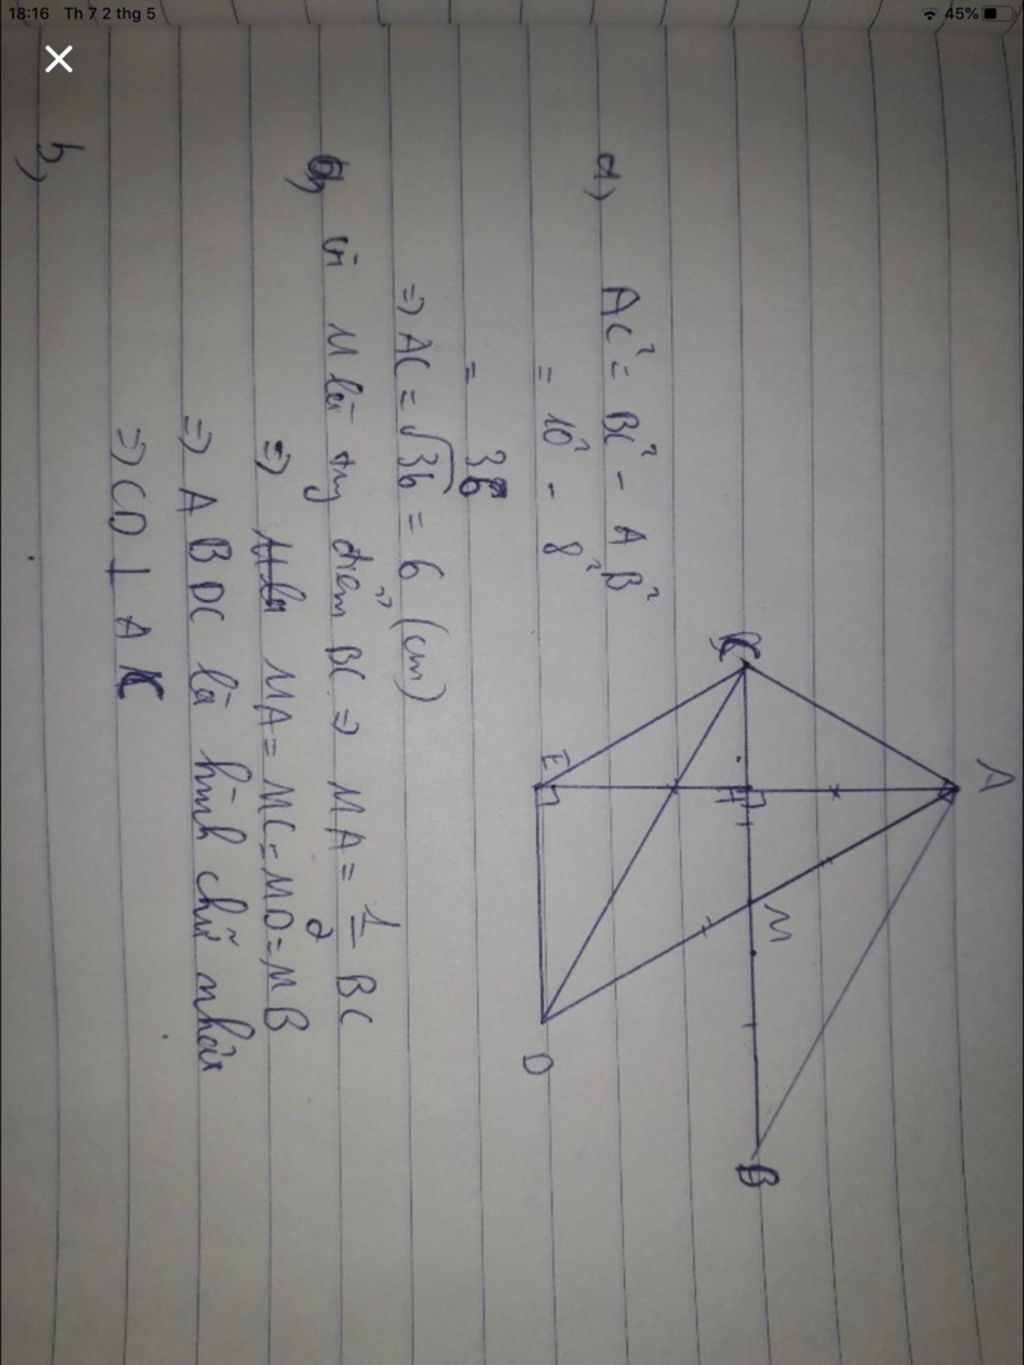 18:16 Th 7 2 thg 5
45%
A
C
H
M
B
E
D
a) AC² = BC² - AB²
= 10² - 8²
= 36
=> AC = √36 = 6 (cm)
vì M là trg điểm BC => MA = 1/2 BC
=> MA = MC = MD = MB
=> ABDC là hình chữ nhật
=> CD ⊥ AC
b)